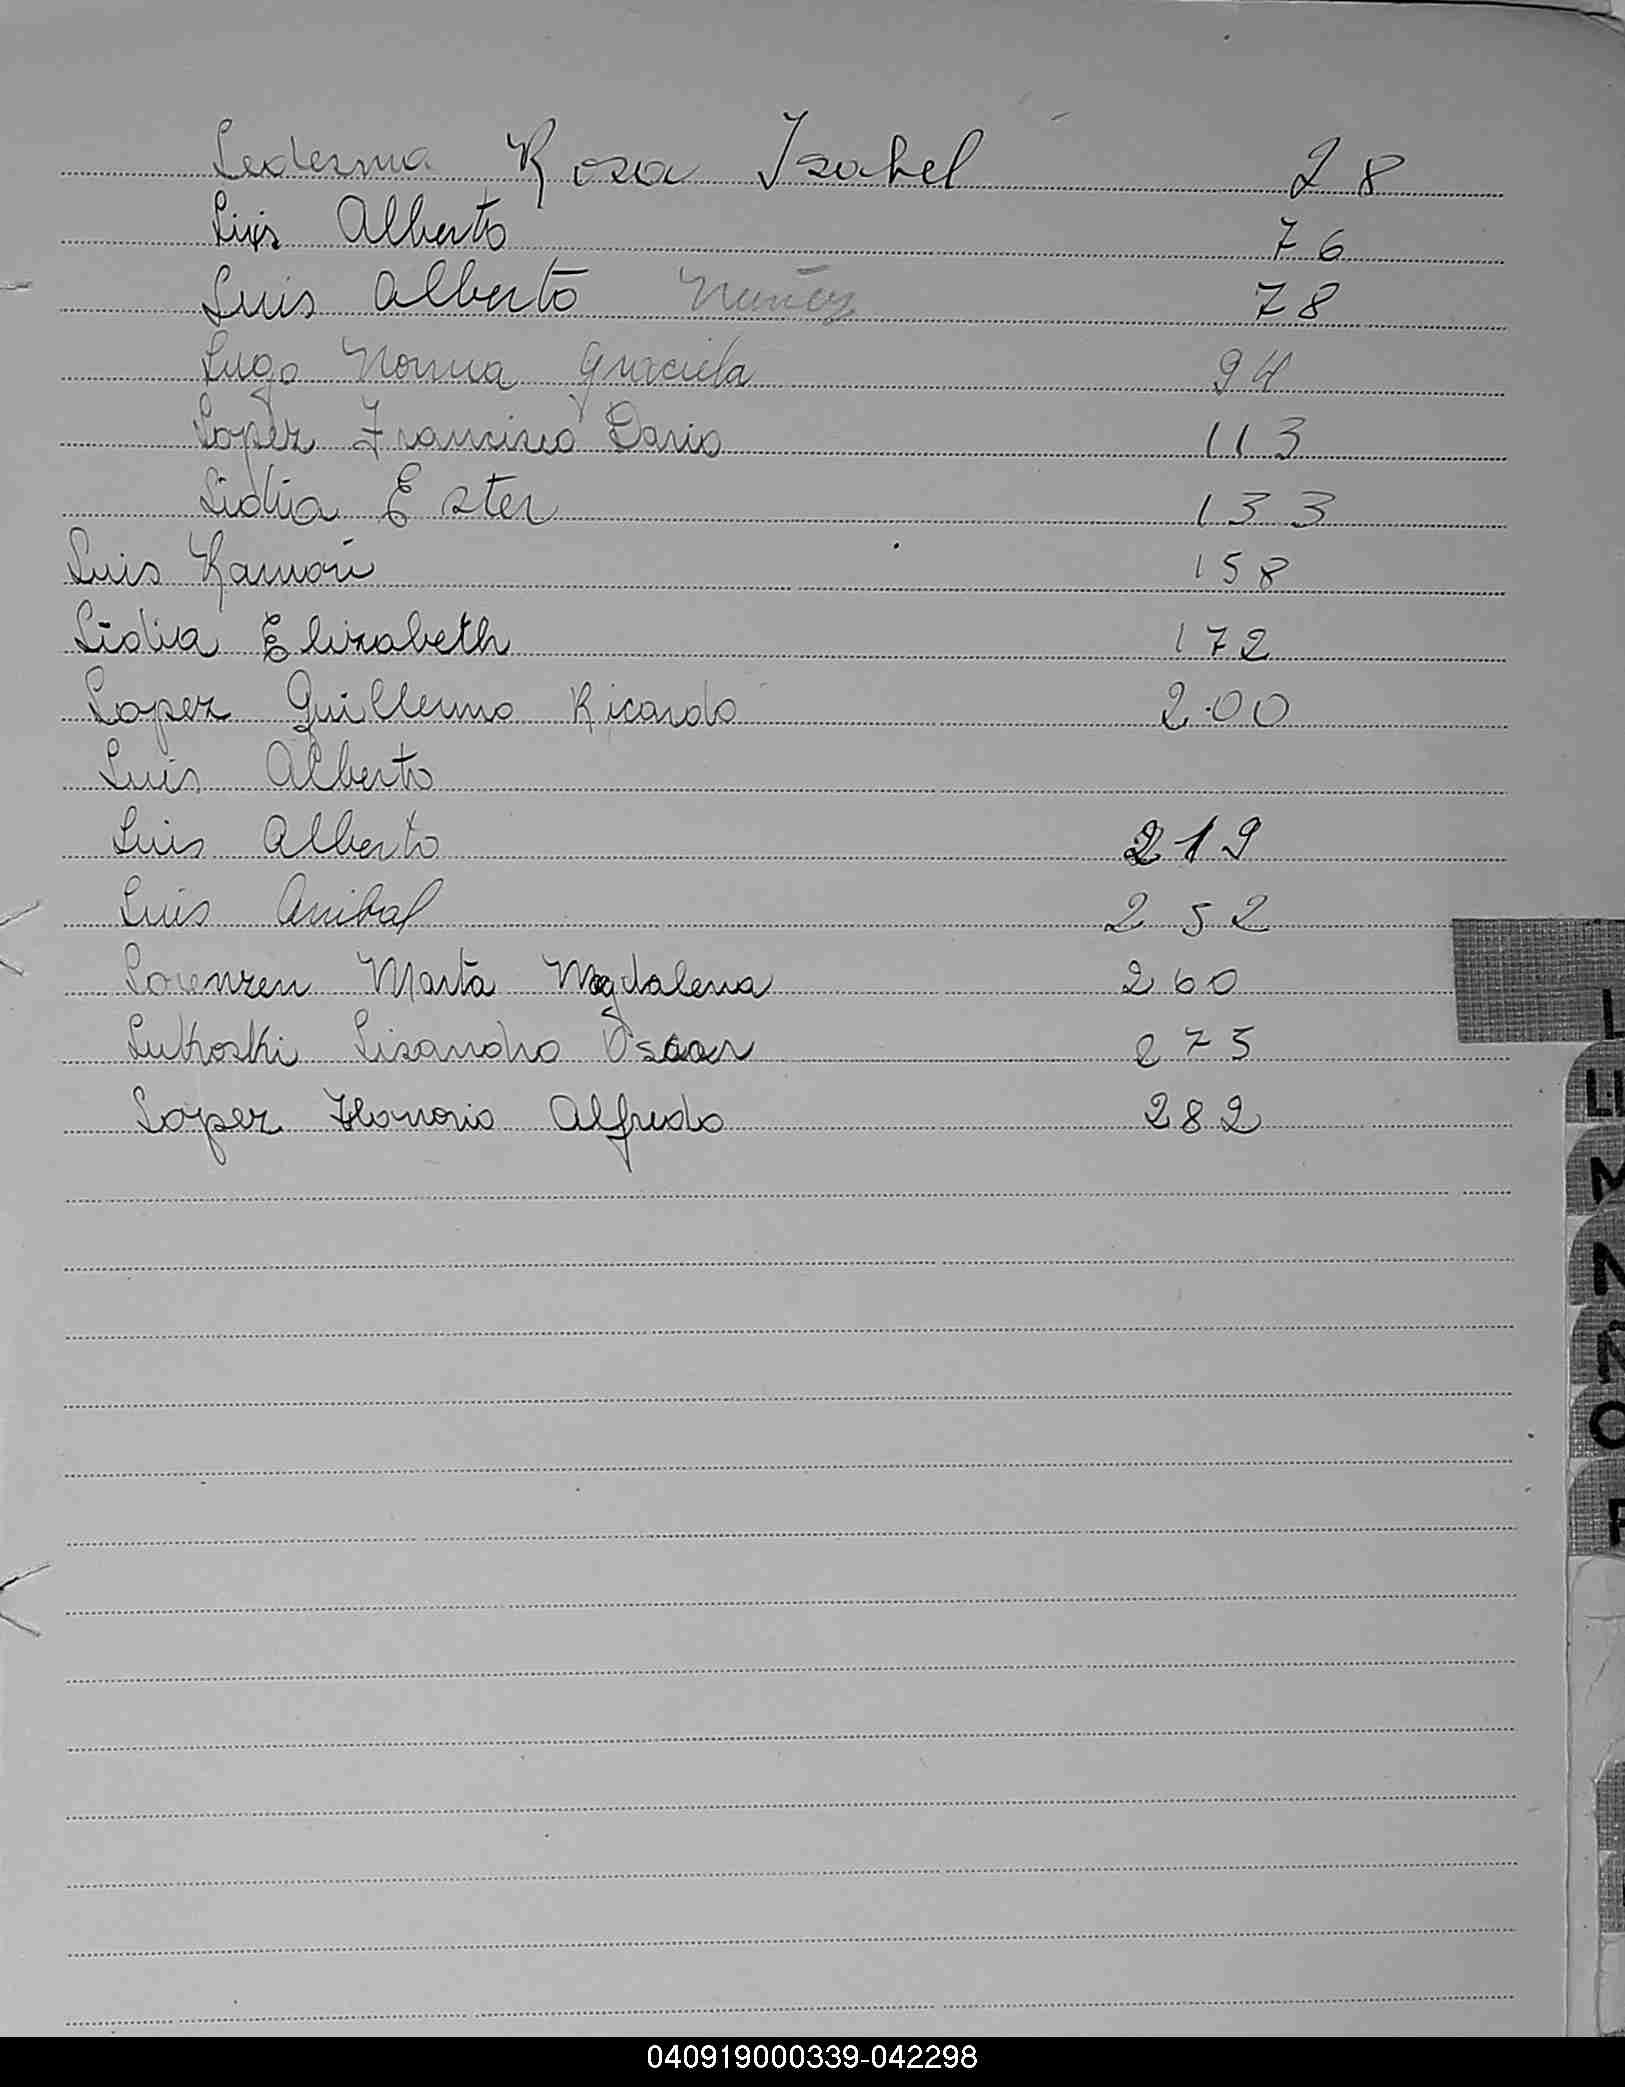 Ledesma Rosa Isabel 28
Luis Alberto 76
Luis Alberto Nuñez 78
Lugo Norma Graciela 94
Lopez Francisco Dario 113
Lidia Ester 133
Luis Ramon 158
Lidia Elizabeth 172
Lopez Guillermo Ricardo 200
Luis Alberto
Luis Alberto 219
Luis Anibal 252
Lorenzen Marta Magdalena 260
Lutkoski Lisandro Oscar 275
Lopez Honorio Alfredo 282
L
LL
M
N
Ñ
O
P
040919000339-042298